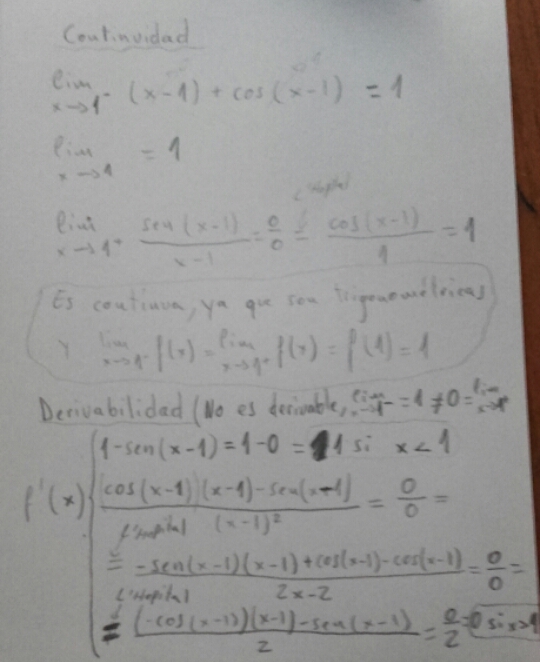 Continuidad
lim x→1⁻ (x-1) + cos(x-1) = 1
lim x→1 = 1
L'Hopital
lim x→1⁺ sen(x-1)/x-1 = 0/0 = cos(x-1)/1 = 1
Es continua, ya que son trigonométricas
y lim x→1⁻ f(x) = lim x→1⁺ f(x) = f(1) = 1
Derivabilidad (No es derivable, lim x→1⁻ = 1 ≠ 0 = lim x→1⁺
f'(x) { 1-sen(x-1) = 1-0 = 1 si x < 1
(cos(x-1))(x-1)-sen(x-1)/(x-1)² = 0/0 =
L'Hopital
= -sen(x-1)(x-1)+cos(x-1)-cos(x-1)/2x-2 = 0/0 =
L'Hopital
= (-cos(x-1))(x-1)-sen(x-1)/2 = 0/2 = 0 si x>1